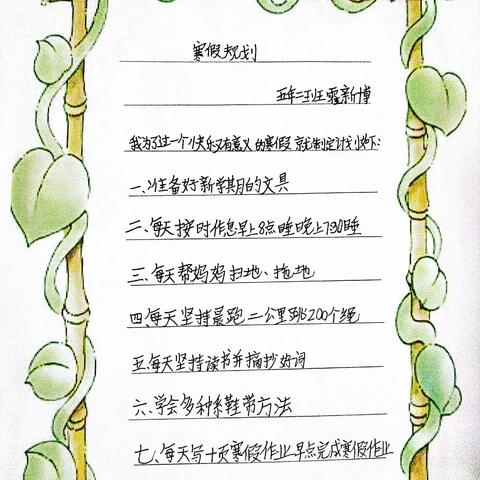 寒假规划
五年二班霍新博
我为了过一个快乐又有意义的寒假 就制定计划如下:
一、准备好新学期的文具
二、每天按时作息早上8点睡晚上730睡
三、每天帮妈妈扫地、拖地
四、每天坚持晨跑二公里跳200个绳
五、每天坚持读书并摘抄好词
六、学会多种系鞋带方法
七、每天写十页寒假作业早点完成寒假作业